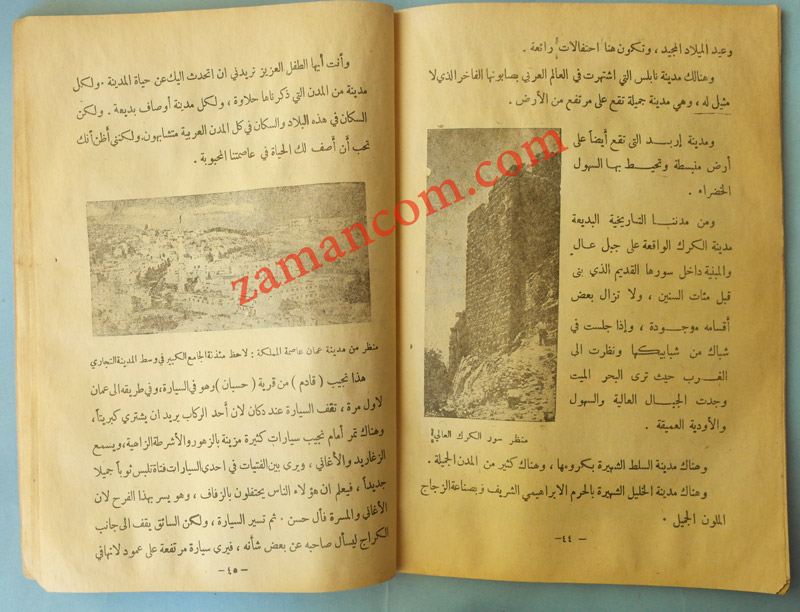 وعيد الميلاد المجيد ، وتكون هنا احتفالات رائعة .
وهنالك مدينة نابلس التي اشتهرت في العالم العربي بصابونها الفاخر الذي لا
مثيل له ، وهي مدينة جميلة تقع على مرتفع من الأرض .
ومدينة إربد التى تقع أيضاً على
أرض منبسطة وتحيط بها السهول
الخضراء .
ومن مدننا التاريخية البديعة
مدينة الكرك الواقعة على جبل عال
والمبنية داخل سورها القديم الذي بنى
قبل مئات السنين ، ولا تزال بعض
أقسامه موجودة ، وإذا جلست في
شباك من شبابيكها ونظرت الى
الغرب حيث ترى البحر الميت
وجدت الجبال العالية والسهول
والأودية العميقة .
منظر سور الكرك العالي
وهناك مدينة السلط الشهيرة بكرومها ، وهناك كثير من المدن الجميلة .
وهناك مدينة الخليل الشهيرة بالحرم الابراهيمي الشريف وبصناعة الزجاج
الملون الجميل .
- ٤٤ -
وأنت أيها الطفل العزيز تريدني ان اتحدث اليك عن حياة المدينة . ولكل
مدينة من المدن التي ذكرناها حلاوة ، ولكل مدينة أوصاف بديعة . ولكن
السكان في هذه البلاد والسكان في كل المدن العربية متشابهون. ولكني أظن أنك
تحب أن أصف لك الحياة في عاصمتنا المحبوبة .
منظر من مدينة عمان عاصمة المملكة : لاحظ مئذنة الجامع الكبير في وسط المدينة التجاري
هذا نجيب ( قادم ) من قرية ( حسبان ) وهو في السيارة، وفي طريقه الى عمان
لاول مرة ، تقف السيارة عند دكان لان أحد الركاب يريد ان يشتري كبريتاً ،
وهناك تمر أمام نجيب سيارات كثيرة مزينة بالزهور والأشرطة الزاهية ، ويسمع
الزغاريد والأغاني ، ويرى بين الفتيات في احدى السيارات فتاة تلبس ثوباً جميلا
جديداً ، فيعلم ان هؤلاء الناس يحتفلون بالزفاف ، وهو يسر بهذا الفرح لان
الأغاني والمسرة فأل حسن . ثم تسير السيارة ، ولكن السائق يقف الى جانب
الكراج ليسأل صاحبه عن بعض شأنه ، فيرى سيارة مرتفعة على عمود لانها في
- ٤٥ -
zamancom.com